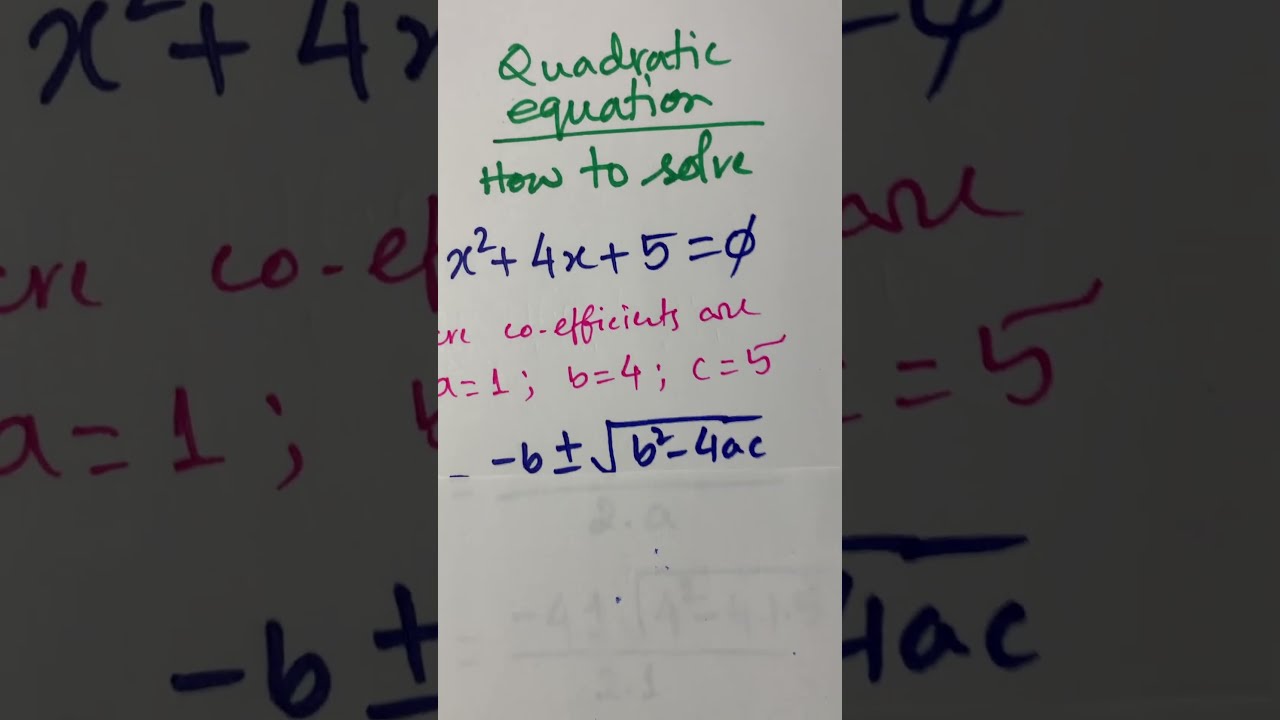 Quadratic
equation
How to solve
x² + 4x + 5 = ϕ
ere co-efficients are
a = 1 ; b = 4 ; c = 5
-b ± √b² - 4ac
=
2.a
-4 ± √4² - 4.1.5
=
2.1